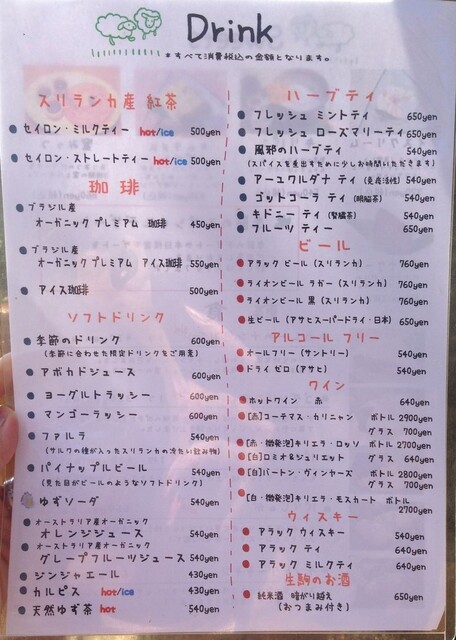 Drink
＊すべて消費税込の金額となります。
スリランカ産 紅茶
セイロン・ミルクティー hot/ice 500yen
セイロン・ストレートティー hot/ice 500yen
珈琲
ブラジル産
オーガニック プレミアム 珈琲 450yen
ブラジル産
オーガニック プレミアム アイス珈琲 550yen
アイス珈琲 500yen
ソフトドリンク
季節のドリンク 600yen
(季節に合わせた限定ドリンクをご用意)
アボカドジュース 600yen
ヨーグルトラッシー 600yen
マンゴーラッシー 600yen
ファルラ 540yen
(サルワの種が入ったスリランカの冷たい飲み物)
パイナップルビール 540yen
(見た目がビールのようなソフトドリンク)
ゆずソーダ 540yen
オーストラリア産オーガニック
オレンジジュース 540yen
オーストラリア産オーガニック
グレープフルーツジュース 540yen
ジンジャエール 430yen
カルピス hot/ice 430yen
天然ゆず茶 hot 540yen
ハーブティ
フレッシュ ミントティ 650yen
フレッシュ ローズマリーティ 650yen
風邪のハーブティ 540yen
(スパイスを煮出すために少しお時間いただきます)
アーユワルダナ ティ (免疫活性) 540yen
ゴットコーラ ティ 540yen
キドニー ティ (腎臓茶) 540yen
フルーツ ティー 650yen
ビール
アラック ビール (スリランカ) 760yen
ライオンビール ラガー (スリランカ) 760yen
ライオンビール 黒 (スリランカ) 760yen
生ビール (アサヒスーパードライ・日本) 650yen
アルコール フリー
オールフリー (サントリー) 540yen
ドライ ゼロ (アサヒ) 540yen
ワイン
ホットワイン 赤 640yen
[赤]コーテマス・カリニャン ボトル 2900yen
グラス 700yen
[赤・微発泡]キリエラ・ロッソ ボトル 2700yen
[白]ロミオ&ジュリエット グラス 640yen
[白]バートン・ヴィンヤーズ ボトル 2800yen
グラス 700yen
[白・微発泡]キリエラ・モスカート ボトル
2700yen
ウィスキー
アラック ウィスキー 540yen
アラック ティ 640yen
アラック ミルクティ 640yen
生駒のお酒
純米酒 暗がり越え 650yen
(おつまみ付き)